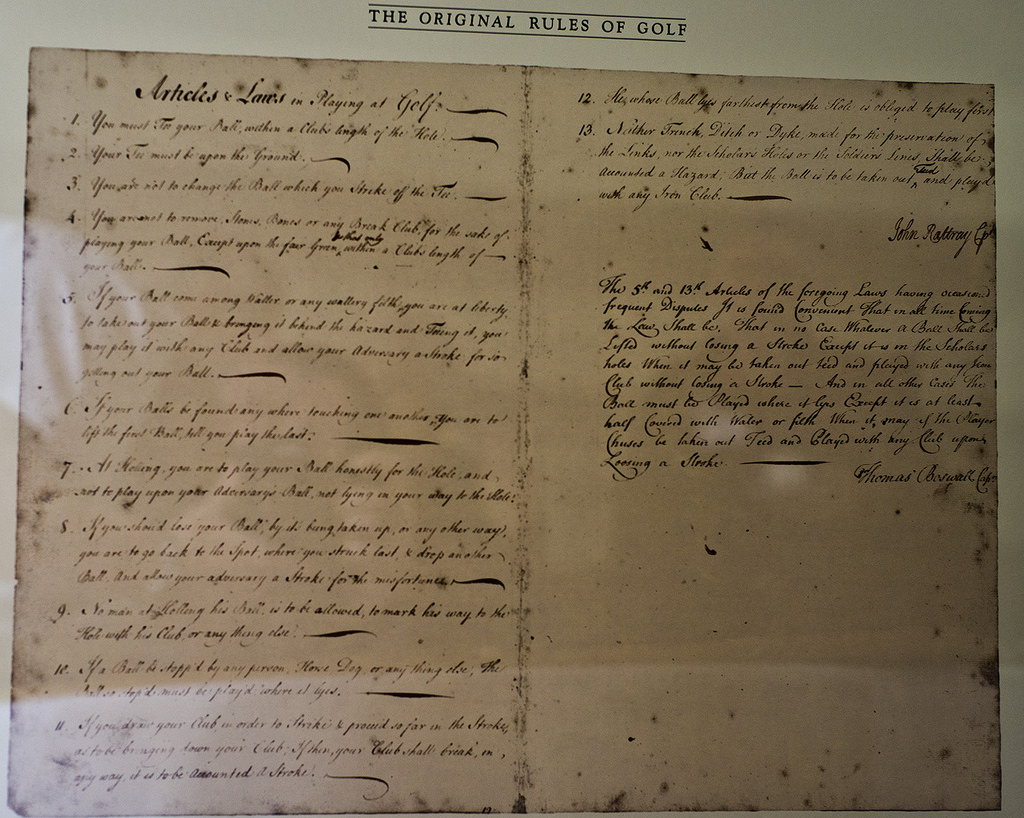 THE ORIGINAL RULES OF GOLF
Articles & Laws in Playing at Golf.
1. You must Tee your Ball, within a Clubs length of the Hole.
2. Your Tee must be upon the Ground.
3. You are not to change the Ball which you Strike off the Tee.
4. You are not to remove, Stones, Bones or any Break Club, for the sake of
playing your Ball, Except upon the fair Green, & that only within a Clubs length of
your Ball.
5. If your Ball come among Watter, or any wattery filth, you are at liberty,
to take out your Ball & bringing it behind the hazard and Teeing it, you
may play it with any Club and allow your Adversary a Stroke for so
getting out your Ball.
6. If your Balls be found any where touching one another, You are to
lift the first Ball, till you play the last.
7. At Holling, you are to play your Ball honestly for the Hole, and
not to play upon your Adversary's Ball, not lying in your way to the Hole.
8. If you should lose your Ball, by it's being taken up, or any other way,
you are to go back to the Spot, where you struck last & drop another
Ball, And allow your adversary a Stroke for the misfortune.
9. No man at Holling his Ball, is to be allowed, to mark his way to the
Hole with his Club, or any thing else.
10. If a Ball be stopp'd by any person, Horse, Dog or any thing else, The
Ball so stop'd must be play'd where it lyes.
11. If you draw your Club in order to Strike & proceed so far in the Stroke,
as to be bringing down your Club; If then, your Club shall break, in
any way, it is to be Accounted A Stroke.
12. He whose Ball lyes farthest from the Hole is obliged to play first.
13. Neither Trench, Ditch or Dyke, made for the preservation of
the Links, nor the Scholars Holes or the Soldiers Lines, Shall be
accounted a Hazard; But the Ball is to be taken out, Teed and play'd
with any Iron Club.
John Rattray Cpt
The 5th and 13th Articles of the foregoing Laws having occasioned
frequent Disputes It is found Convenient That in all time Coming
the Law Shall be, That in no Case Whatever A Ball Shall be
Lifted without losing a Stroke Except it is in the Scholars
holes When it may be taken out teed and played with any Iron
Club without losing a Stroke — And in all other Cases The
Ball must be Played where it lyes Except it is at least
half Covered with Water or filth When it may if the Player
Chuses be taken out Teed and Played with any Club upon
Loosing a Stroke.
Thomas Boswall Capt